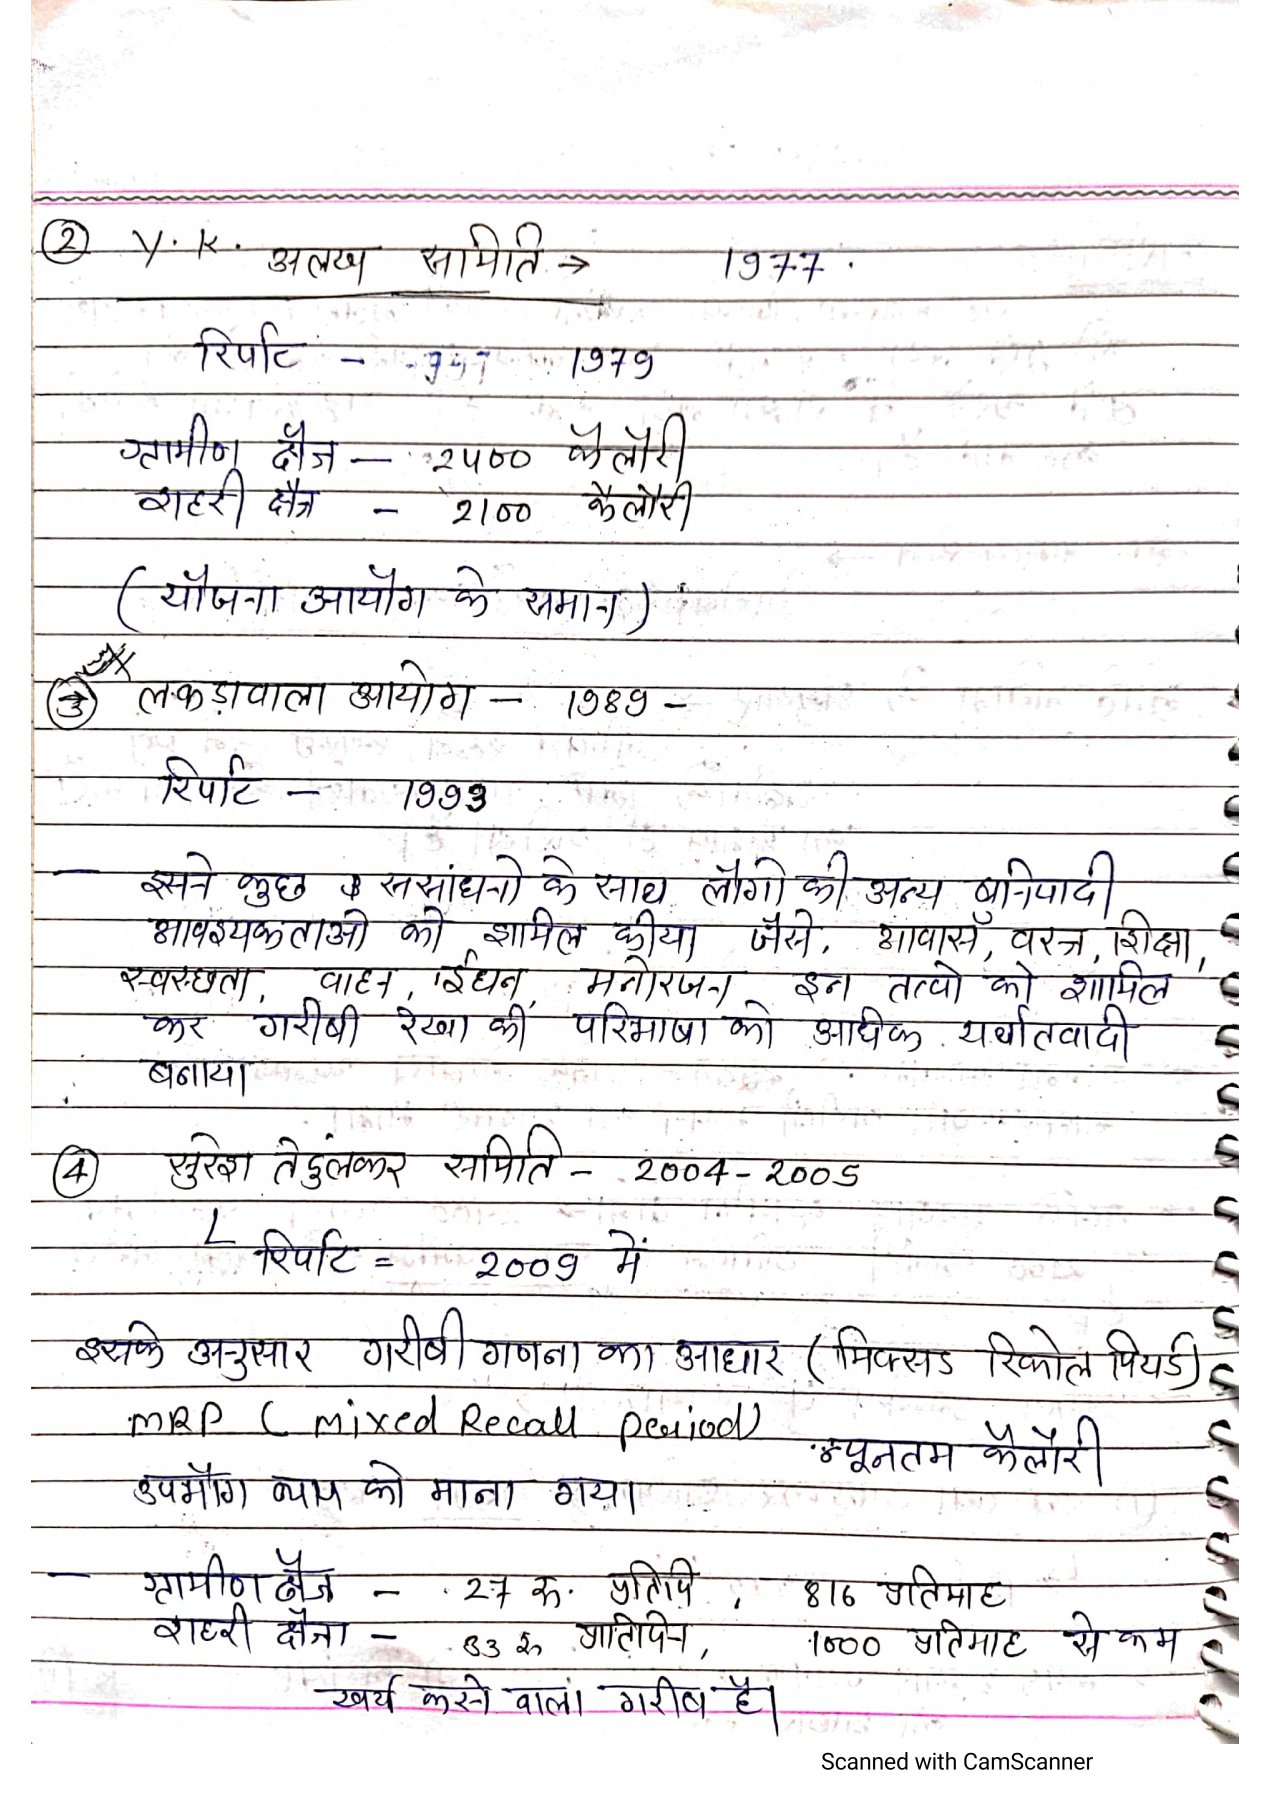 ② Y. K. अलख समिति → 1977.
रिर्पाट - 1979
ग्रामीण क्षैत्र — 2400 कैलौरी
शहरी क्षैत्र - 2100 कैलौरी
(यौजना आयौग के समान)
③ लकड़ावाला आयोग - 1989 -
रिर्पाट - 1993
— इसने कुछ ससांधनो के साथ लौगो की अन्य बुनियादी
आवश्यकताओ को शामिल कीया जैसे, आवास, वस्त्र, शिक्षा,
स्वस्छता, वाहन, ईधन, मनोरजन इन तत्वो को शामिल
कर गरीबी रेखा की परिभाषा को अधिक यर्थातवादी
बनाया
④ सुरेश तेदुंलकर समिति - 2004-2005
रिर्पाट = 2009 में
इसके अनुसार गरीबी गणना का आधार (मिक्सड रिकोल पियर्ड)
MRP (Mixed Recall Period) न्यूनतम कैलौरी
उपभौग व्यय को माना गया
— ग्रामीण क्षैत्र - 27 रू. प्रतिदि, 816 प्रतिमाह
शहरी क्षैत्रा - 33 रू प्रतिदिन, 1000 प्रतिमाह से कम
खर्च करने वाला गरीब है।
Scanned with CamScanner